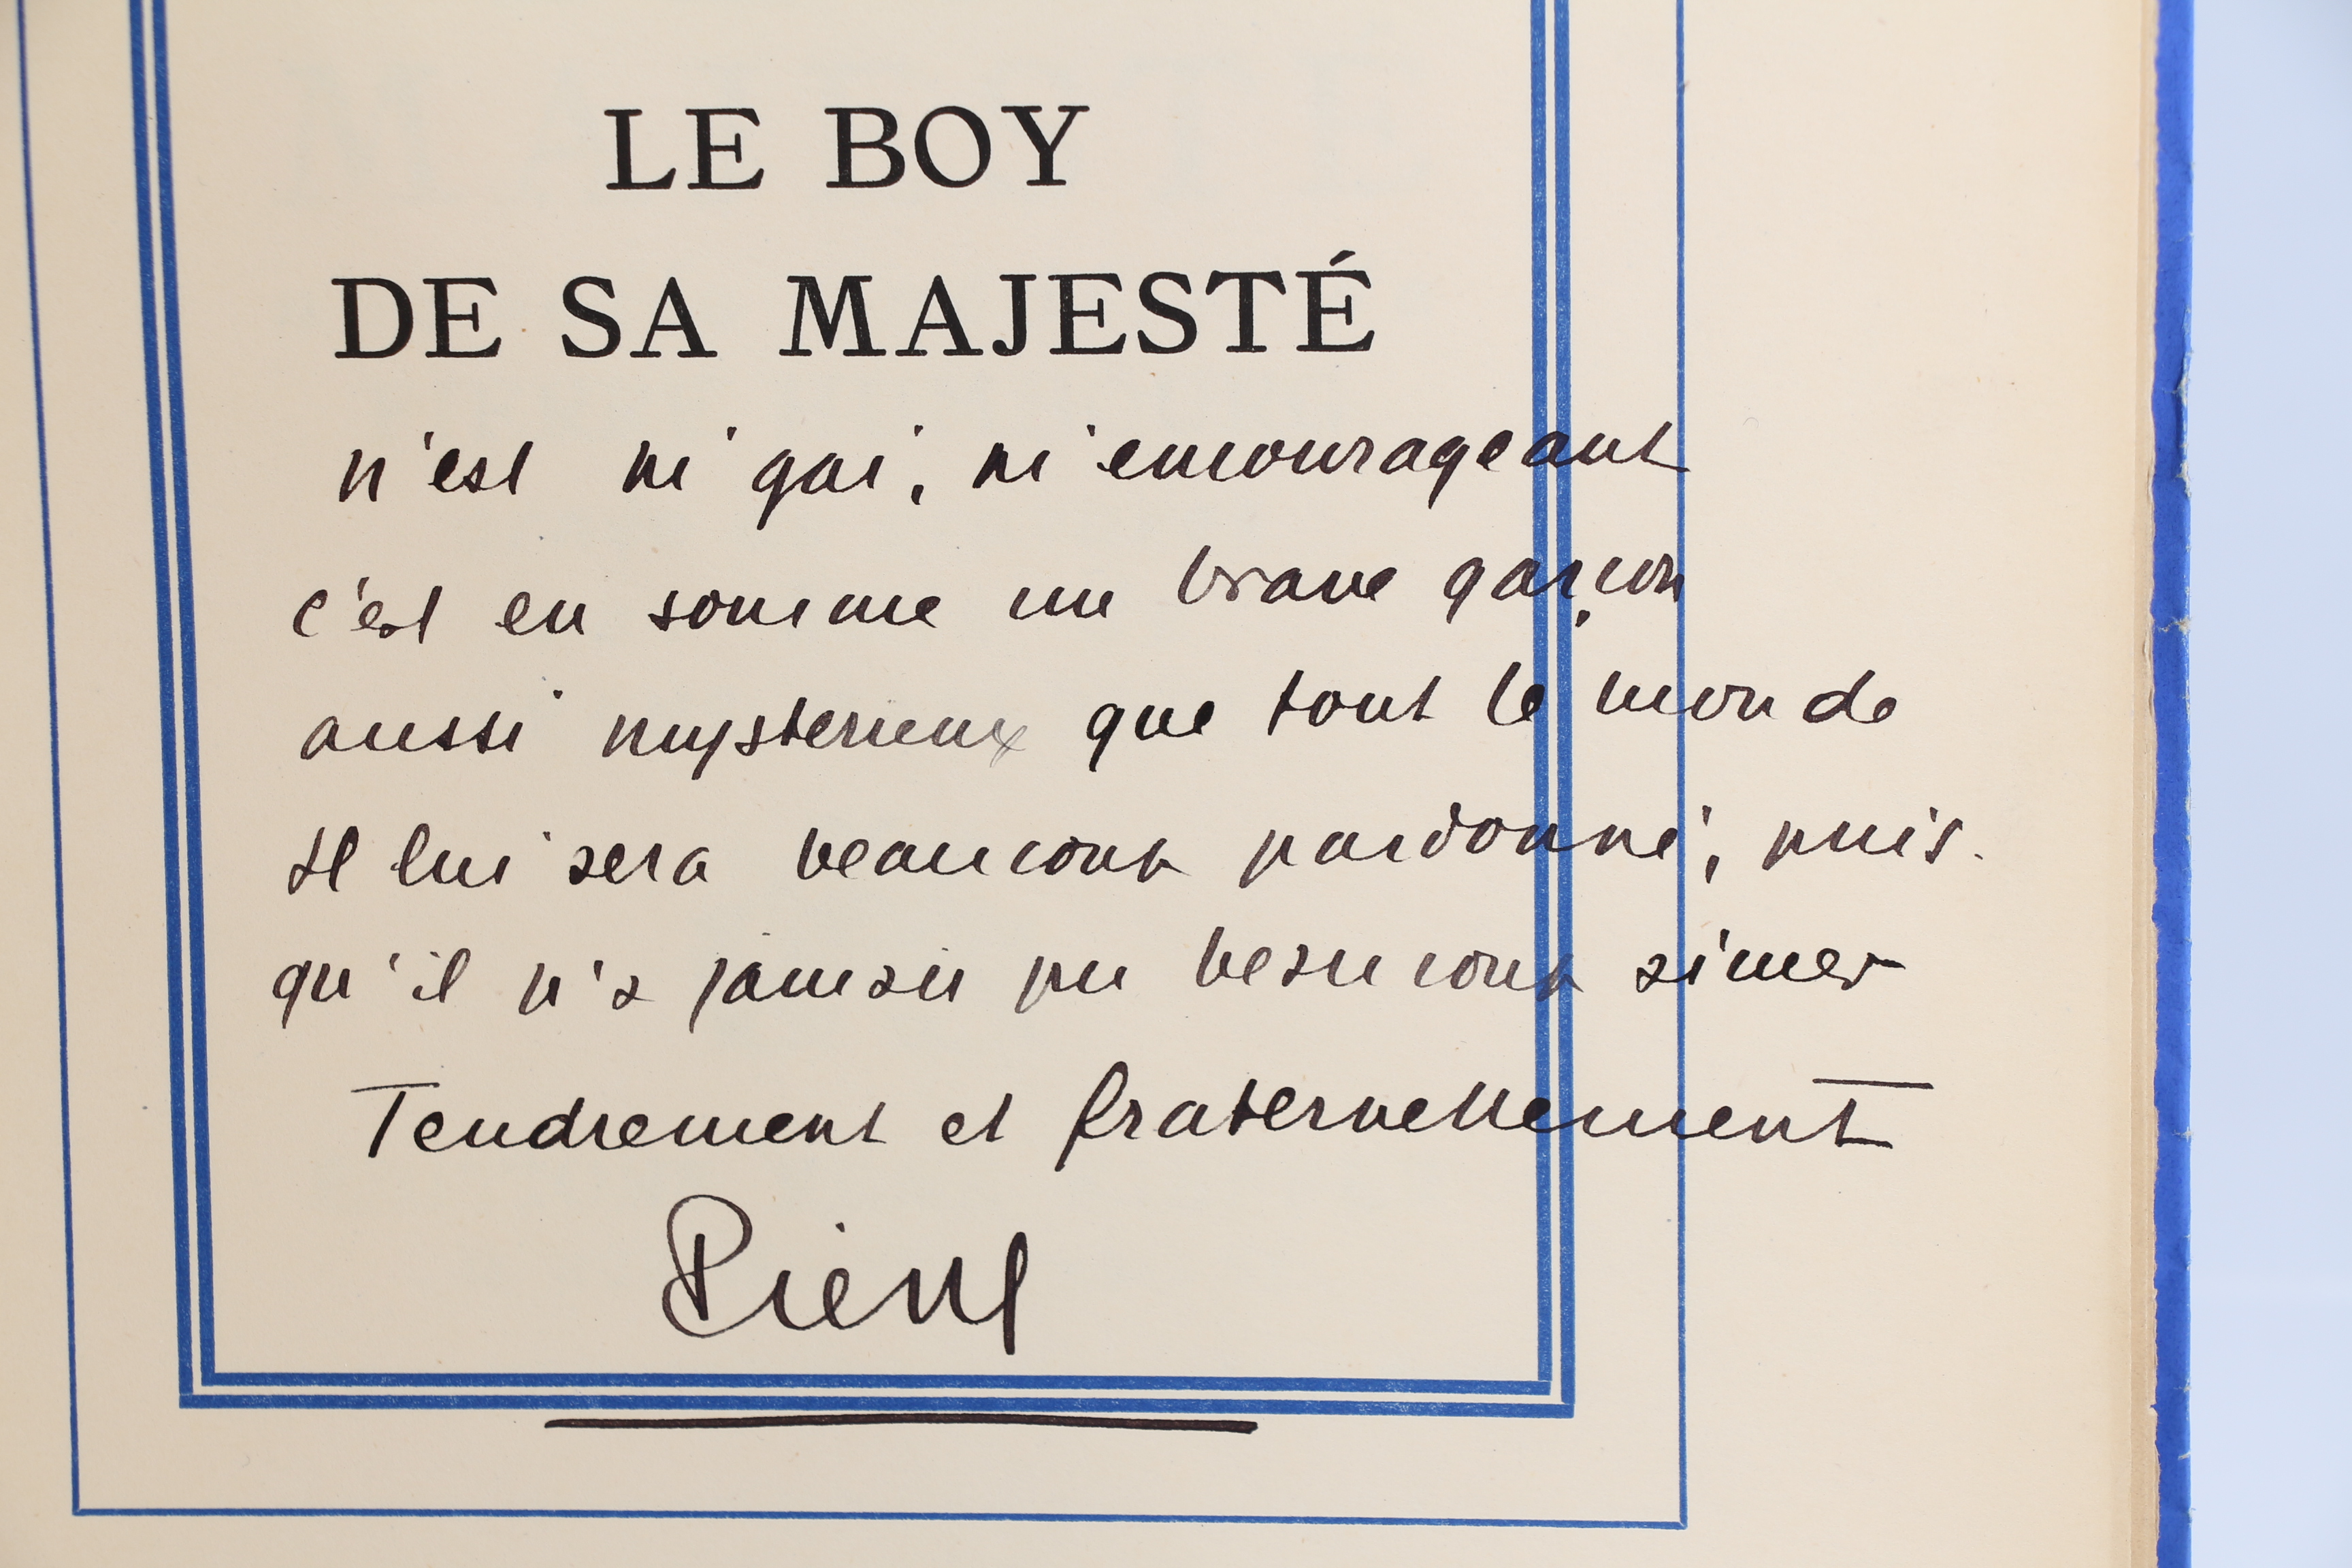 LE BOY
DE SA MAJESTÉ
n'est ni gai, ni encourageant
c'est en somme un brave garçon
aussi mysterieux que tout le monde
Il lui sera beaucoup pardonné, puis-
qu'il n'a jamais pu beaucoup aimer
Tendrement et fraternellement